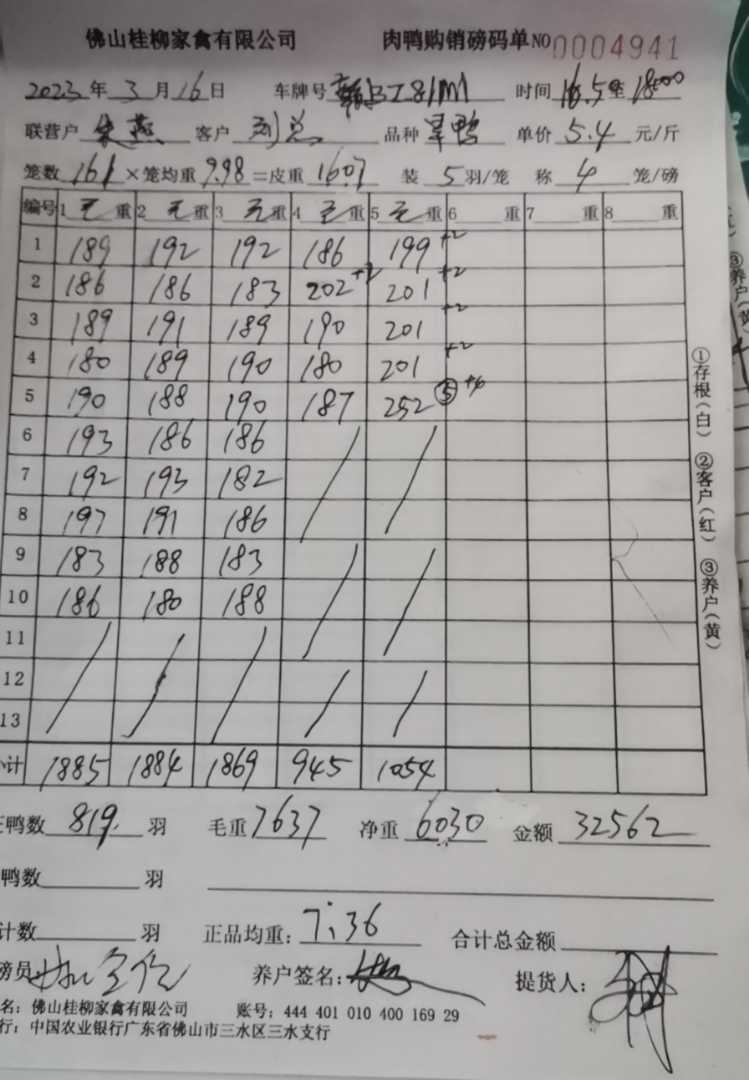 佛山桂柳家禽有限公司 肉鸭购销磅码单 NO 0004941
2023年3月16日 车牌号 时间 16.5至18:00
联营户 客户 刘总 品种 单价 5.4 元/斤
笼数 161 ×笼均重 9.98 =皮重 1607 装 5 羽/笼 称 4 笼/磅
编号 1 毛重 2 毛重 3 毛重 4 毛重 5 毛重 6 重 7 重 8 重
1 189 192 192 186 199 +2
2 186 186 183 202 +2 201 +2
3 189 191 189 190 201 +2
4 180 189 190 180 201 +2
5 190 188 190 187 252 ⑤ +6
6 193 186 186
7 192 193 182
8 197 191 186
9 183 188 183
10 186 180 188
11
12
13
计 1885 1884 1869 945 1054
鸭数 819 羽 毛重 7637 净重 6030 金额 32562
鸭数 羽
计数 羽 正品均重: 7.36 合计总金额
磅员 养户签名: 提货人:
名: 佛山桂柳家禽有限公司 账号: 444 401 010 400 169 29
行: 中国农业银行广东省佛山市三水区三水支行
①存根(白) ②客户(红) ③养户(黄)
③养户(黄)